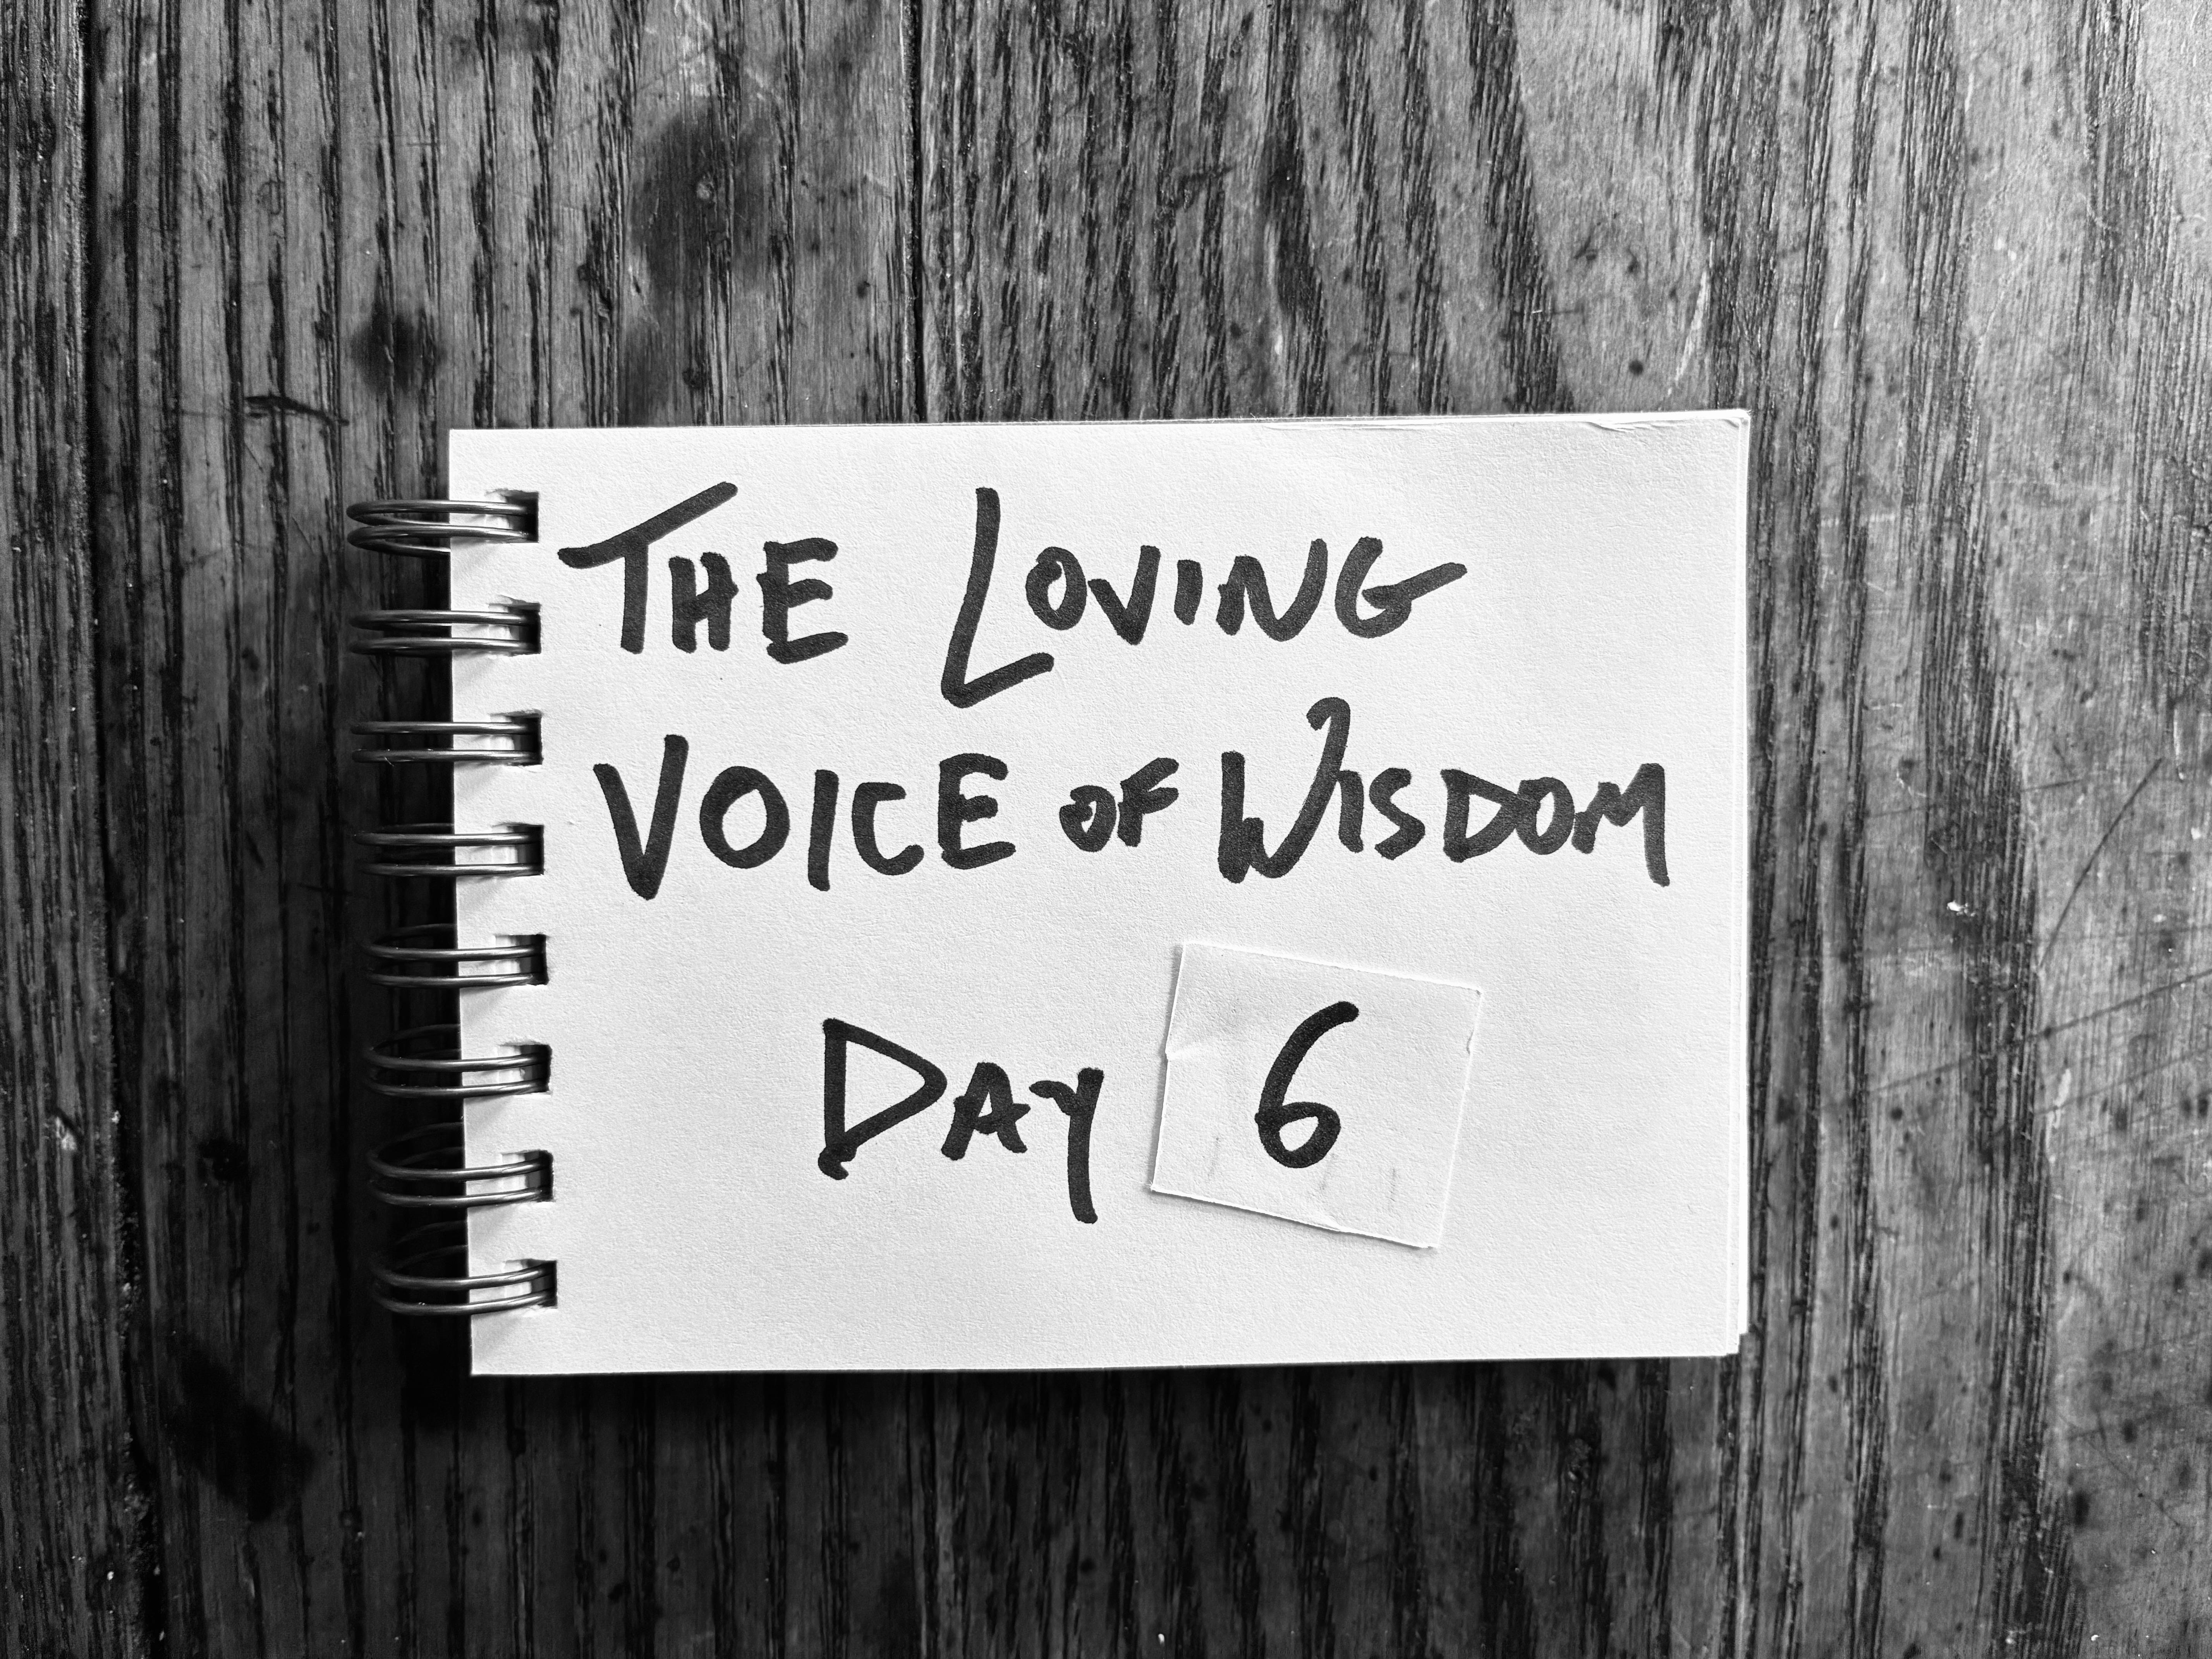 The Loving
Voice of Wisdom
Day 6